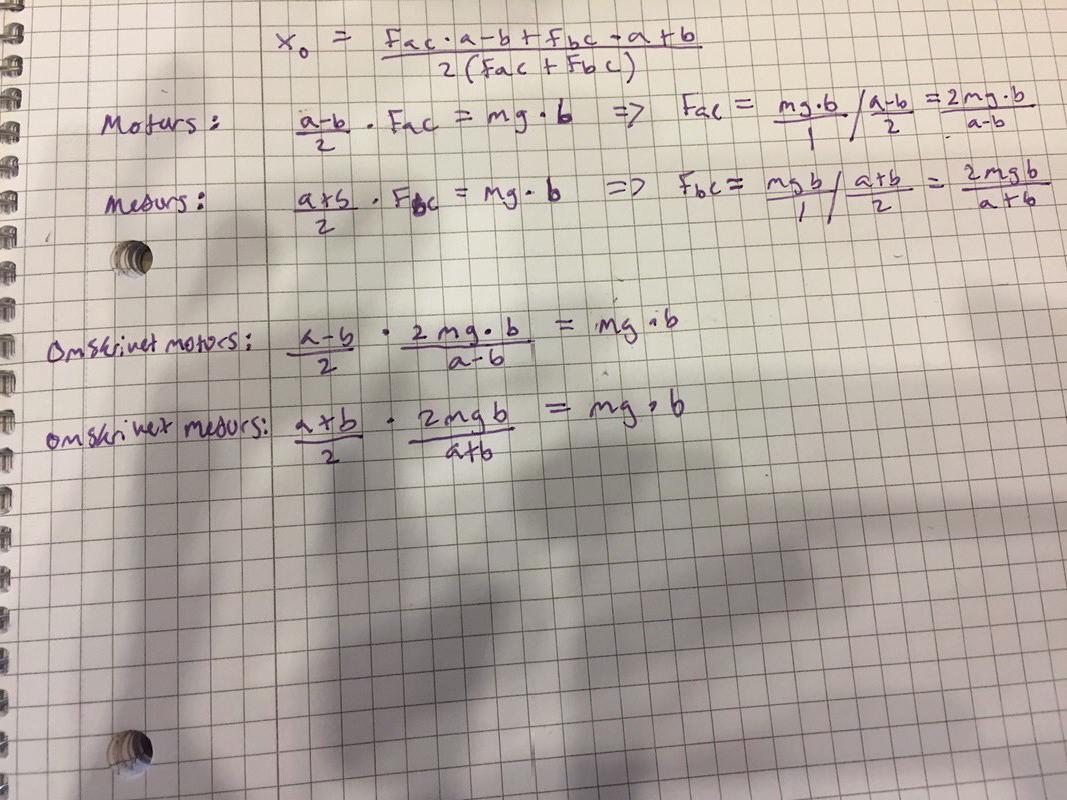 x₀ = (Fac · a-b + Fbc · a+b) / 2(Fac + Fbc)
Moturs: (a-b)/2 · Fac = mg · b => Fac = (mg·b)/1 / (a-b)/2 = (2mg·b)/(a-b)
Medurs: (a+b)/2 · Fbc = mg · b => Fbc = (mgb)/1 / (a+b)/2 = (2mgb)/(a+b)
Omskrivet motors: (a-b)/2 · (2mg·b)/(a-b) = mg · b
omskrivet medurs: (a+b)/2 · (2mgb)/(a+b) = mg · b